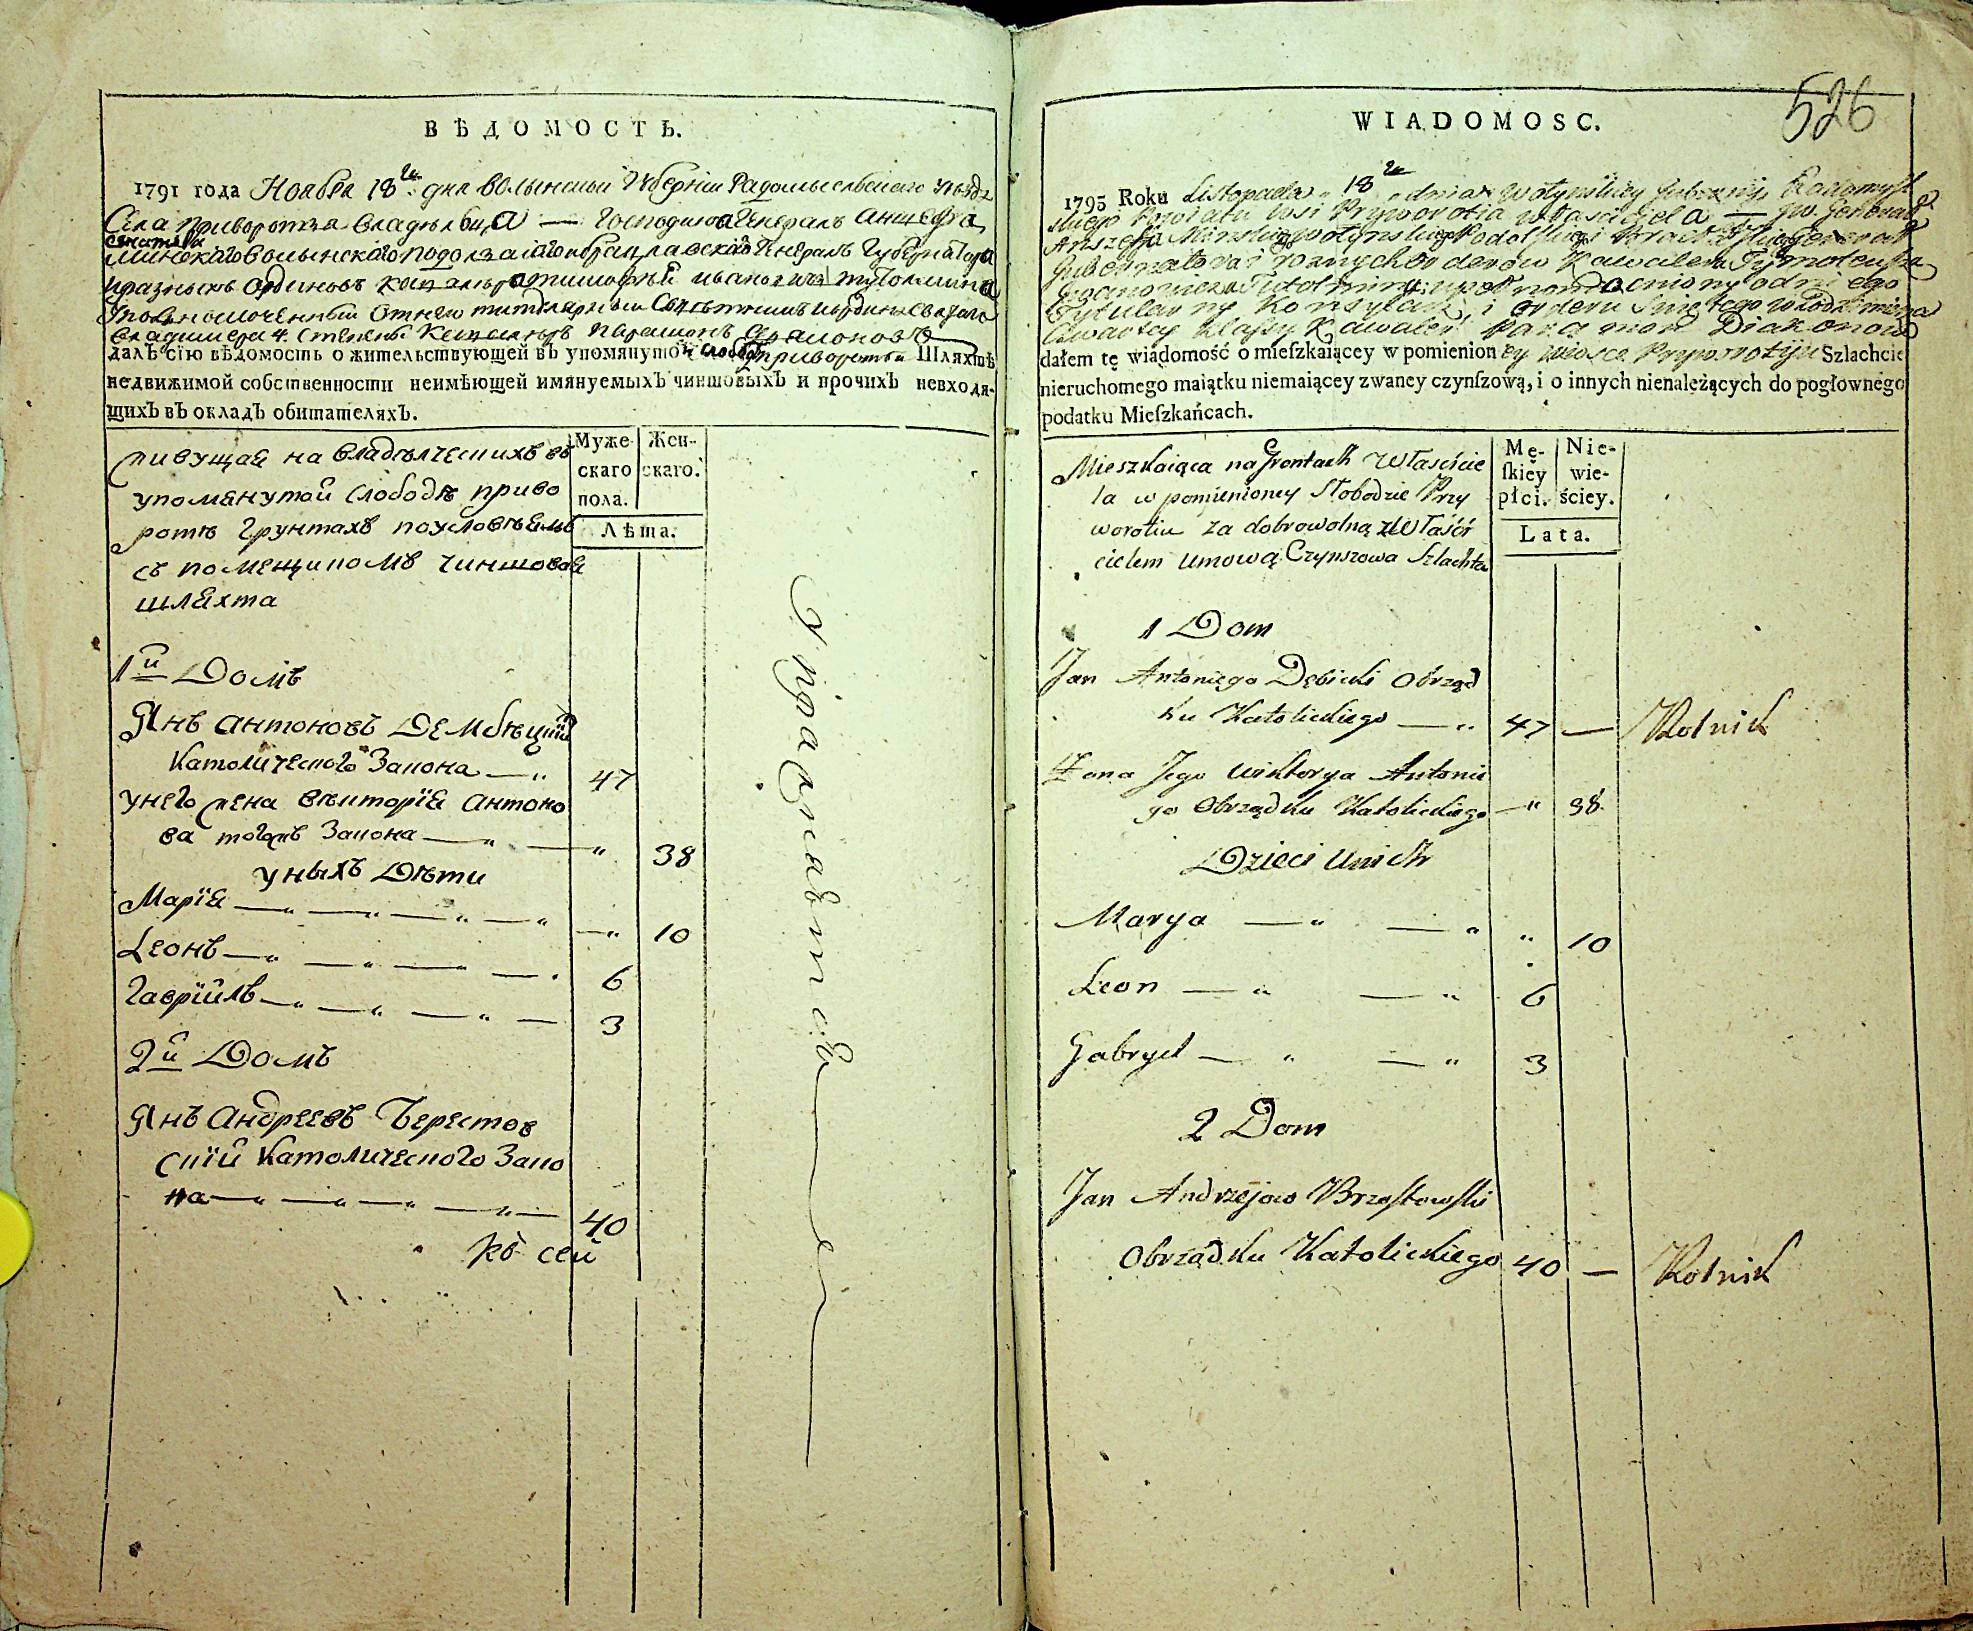 ВѢДОМОСТЬ.
1791 года Ноября 18го дня волынской Губернїи Радомысльского
Села приворотья владѣльца — Господина Генералъ Аншефа
сенатора
Минского волынского подольского Генералъ Губернатора
и разныхъ Ординовъ тутолмина
Уполномоченный отнего титулярный
владимера 4. степени
далъ сїю вѣдомость о жительствующей въ упомянутой слободѣ приворотьи Шляхтѣ
недвижимой собственности неимѣющей имянуемыхъ чиншовыхъ и прочихъ невходя-
щихъ въ окладъ обитателяхъ.
Муже-
скаго
пола.
Жен-
скаго.
Лѣта.
живущая на владѣлческихъ въ
упомянутой слободѣ приво
ротѣ грунтахъ поусловѣямъ
съ помещикомъ чиншовая
шляхта
1й Домъ
Янъ антоновъ Дембѣцкїй
Католического Закона — 47
унего жена виктория антоно
ва тогожъ Закона — — 38
у ныхъ Дѣти
Марїя — — — — — 10
Леонъ — — — — 6
Гаврїилъ — — — — 3
2й Домъ
Янъ Андреевъ Берестов
скїй Католического Зако
на — — — — 40
Къ сей
Управитель
526
WIADOMOSC.
1795 Roku Listopada 18go dnia Wołynskiey Gubernij Radomysl
skiego Powiatu wsi Pryworotia własciciela — Jw. Generał
Anszefa Minskiego Wołynskiego Podolskiego i Bracławskiego Generał
Gubernatora i roznych orderow Kawalera Tymoteusza
Tutołmina upełnomocniony od niego
Tytularny Konsyliarz i orderu Swiętego Włodzimirza
Czwartey klassy Kawaler Paramon Diakonow
dałem tę wiadomość o mieſzkaiącey w pomienioney wiosce Pryworotiju Szlachcie
nieruchomego maiątku niemaiącey zwaney czynſzową, i o innych nienależących do pogłownego
podatku Mieſzkańcach.
Mę-
ſkiey
płci.
Nie-
wie-
ściey.
Lata.
Mieszkaiąca na Grontach Włascicie
la w pomienioney Słobodzie Pry
worotiu za dobrowolną z Właści
cielem umową Czynszowa Szlachta
1 Dom
Jan Antoniego Dębicki obrząd
ku Katolickiego — 47 — Rolnik
Zona Jego Wiktorya Antonie
go Obrządku Katolickiego — 38
Dzieci Unich
Marya — — 10
Leon — — 6
Gabryel — — 3
2 Dom
Jan Andrzejow Brzostowski
Obrządku Katolickiego 40 — Rolnik